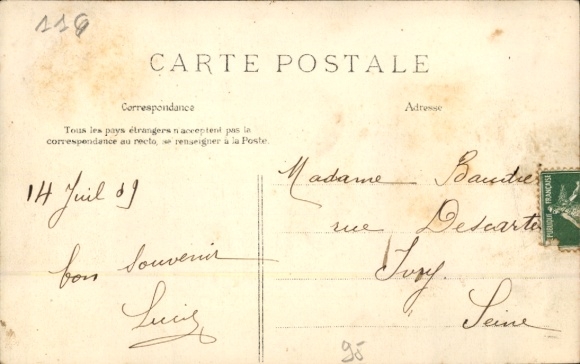 119
CARTE POSTALE
Correspondance
Adresse
Tous les pays étrangers n'acceptent pas la
correspondance au recto, se renseigner à la Poste.
14 Juil 09
bon souvenir
Lucie
Madame
rue Descartes
Ivry
Seine
95
PUBLIQUE FRANÇAISE